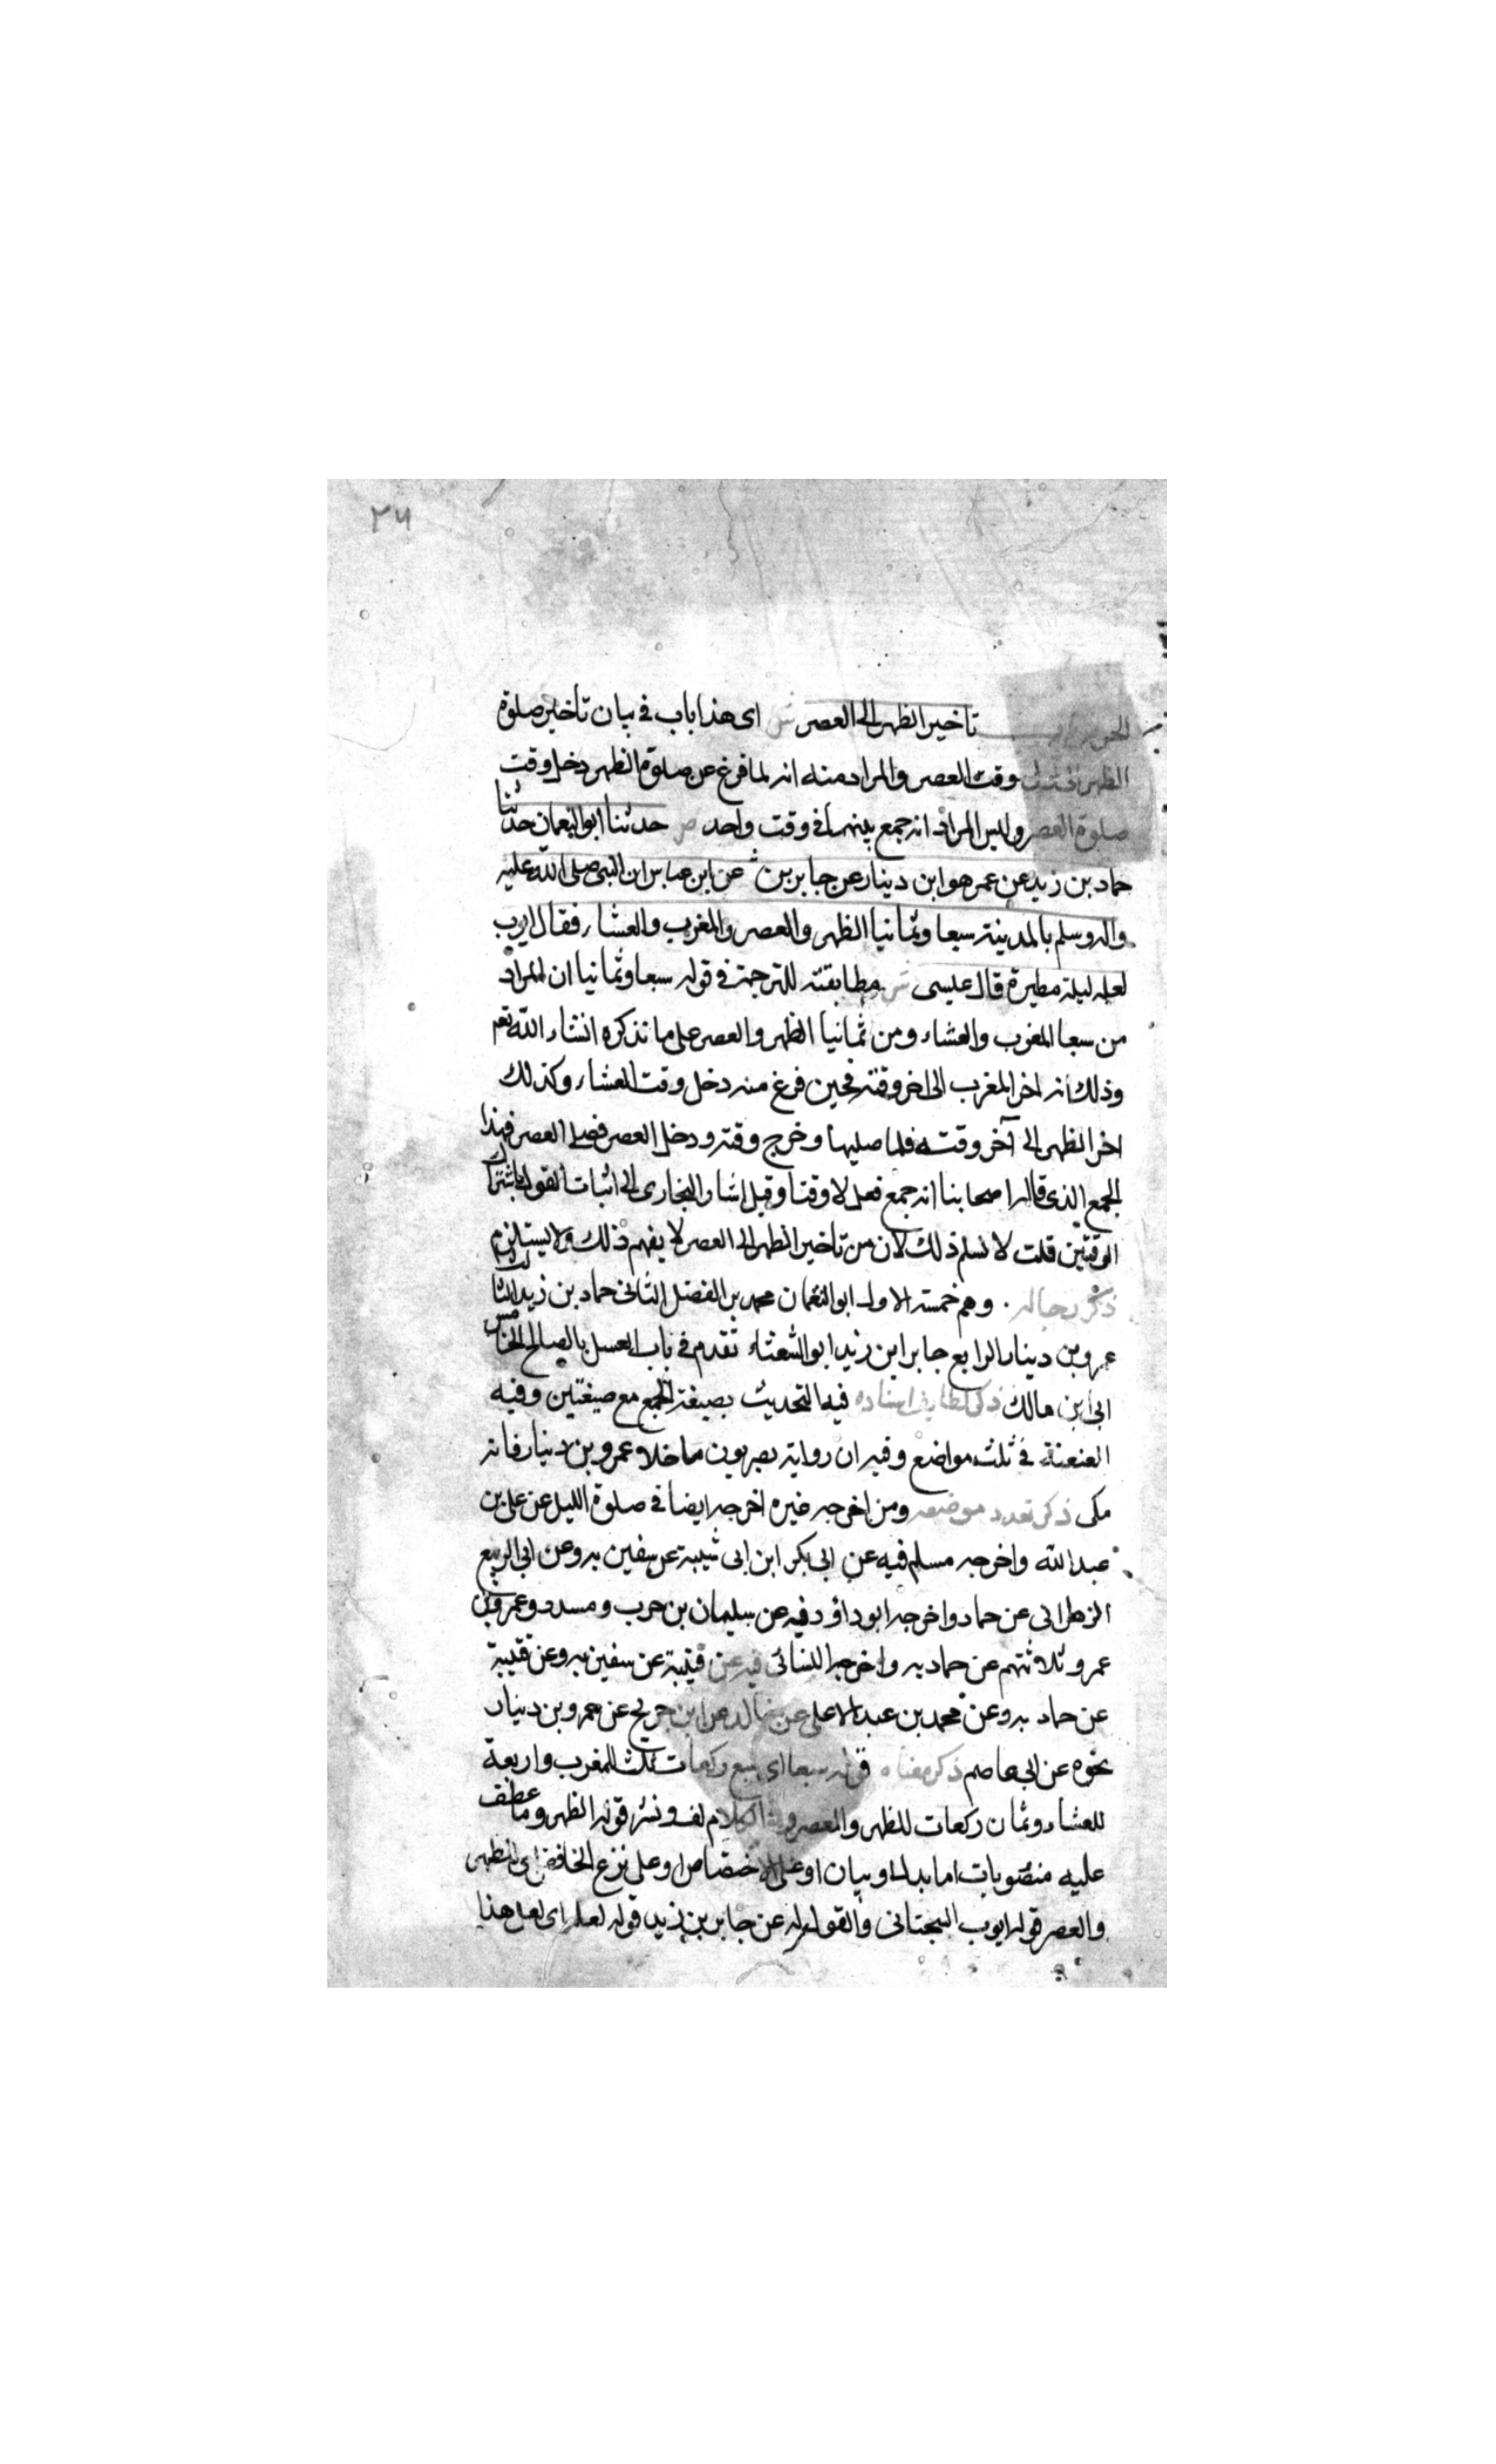 ٢٦
الحر باب تاخير الظهر الى العصر ش اى هذا باب فى بيان تأخير صلوة
الظهر الى وقت العصر والمراد منه انه لما فرغ عن صلوة الظهر دخل وقت
صلوة العصر وليس المراد انه جمع بينهما فى وقت واحد ص حدثنا ابو النعمان حدثنا
حماد بن زيد عن عمر هو ابن دينار عن جابر بن عن ابن عباس ان النبى صلى الله عليه
واله وسلم بالمدينة سبعا وثمانيا الظهر والعصر والمغرب والعشاء فقال ايوب
لعله ليلة مطيرة قال عيسى ش مطابقته للترجمة فى قوله سبعا وثمانيا ان المراد
من سبعا المغرب والعشاء ومن ثمانيا الظهر والعصر على ما نذكره انشاء الله تعم
وذلك انه اخر المغرب الى اخر وقته فحين فرغ منه دخل وقت العشاء وكذلك
اخر الظهر الى آخر وقته فلما صليها وخرج وقته ودخل العصر فصلى العصر فهذا
الجمع الذى قاله اصحابنا انه جمع فعلا لا وقتا وقيل اشار البخارى الى اثبات القول باشتراك
الوقتين قلت لا نسلم ذلك لان من تاخير الظهر الى العصر لا يفهم ذلك ولا يستلزم
ذكر رجاله وهم خمسة الاول ابو النعمان محمد بن الفضل الثانى حماد بن زيد الثالث
عمرو بن دينار الرابع جابر ابن زيد ابو الشعثاء تقدم فى باب الغسل بالصاع الخامس
ابى ابن مالك ذكر لطايف اسناده فيه التحديث بصيغة الجمع مع صيغتين وفيه
العنعنة فى ثلث مواضع وفيه ان رواية بصريون ما خلا عمرو بن دينار فانه
مكى ذكر تعدد موضعه ومن اخرجه غيره اخرجه ايضا فى صلوة الليل عن على بن
عبد الله واخرجه مسلم فيه عن ابى بكر ابن ابى شيبة عن سفين به وعن ابى الربيع
الزهرانى عن حماد واخرجه ابو داؤد فيه عن سليمان بن حرب ومسدد وعمرو بن
عمر وثلاثتهم عن حماد به واخرجه النسائى فيه عن قتيبة عن سفين به وعن قتيبة
عن حماد به وعن محمد بن عبد الاعلى عن خالد عن ابن جريج عن عمرو بن دينار
نحوه عن ابى عاصم ذكر معناه قوله سبعا اى سبع ركعات ثلث للمغرب واربعة
للعشاء وثمان ركعات للظهر والعصر و الكلام لف ونشر قوله الظهر وما عطف
عليه منصوبات اما بدل او بيان او على الاختصاص او على نزع الخافض اى للظهر
والعصر قوله ايوب السجتانى والقول له عن جابر بن زيد قوله لعله اى لعل هذا